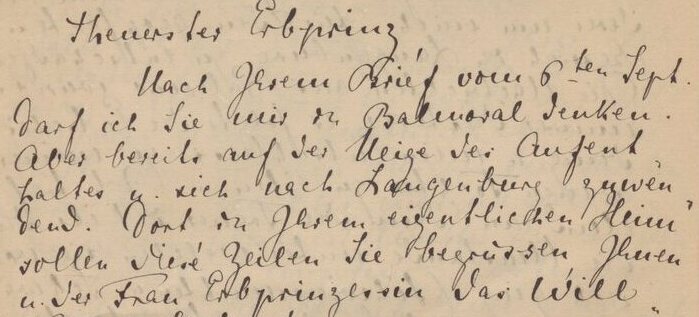 Theuerster Erbprinz
Nach Ihrem Brief vom 6ten Sept.
darf ich Sie mir in Balmoral denken.
Aber bereits auf der Neige des Aufent
haltes u. sich nach Langenburg zuwen
dend. Dort in Ihrem eigentlichen Heim
sollen diese Zeilen Sie begrüssen Ihnen
u. der Frau Erbprinzessin das Will